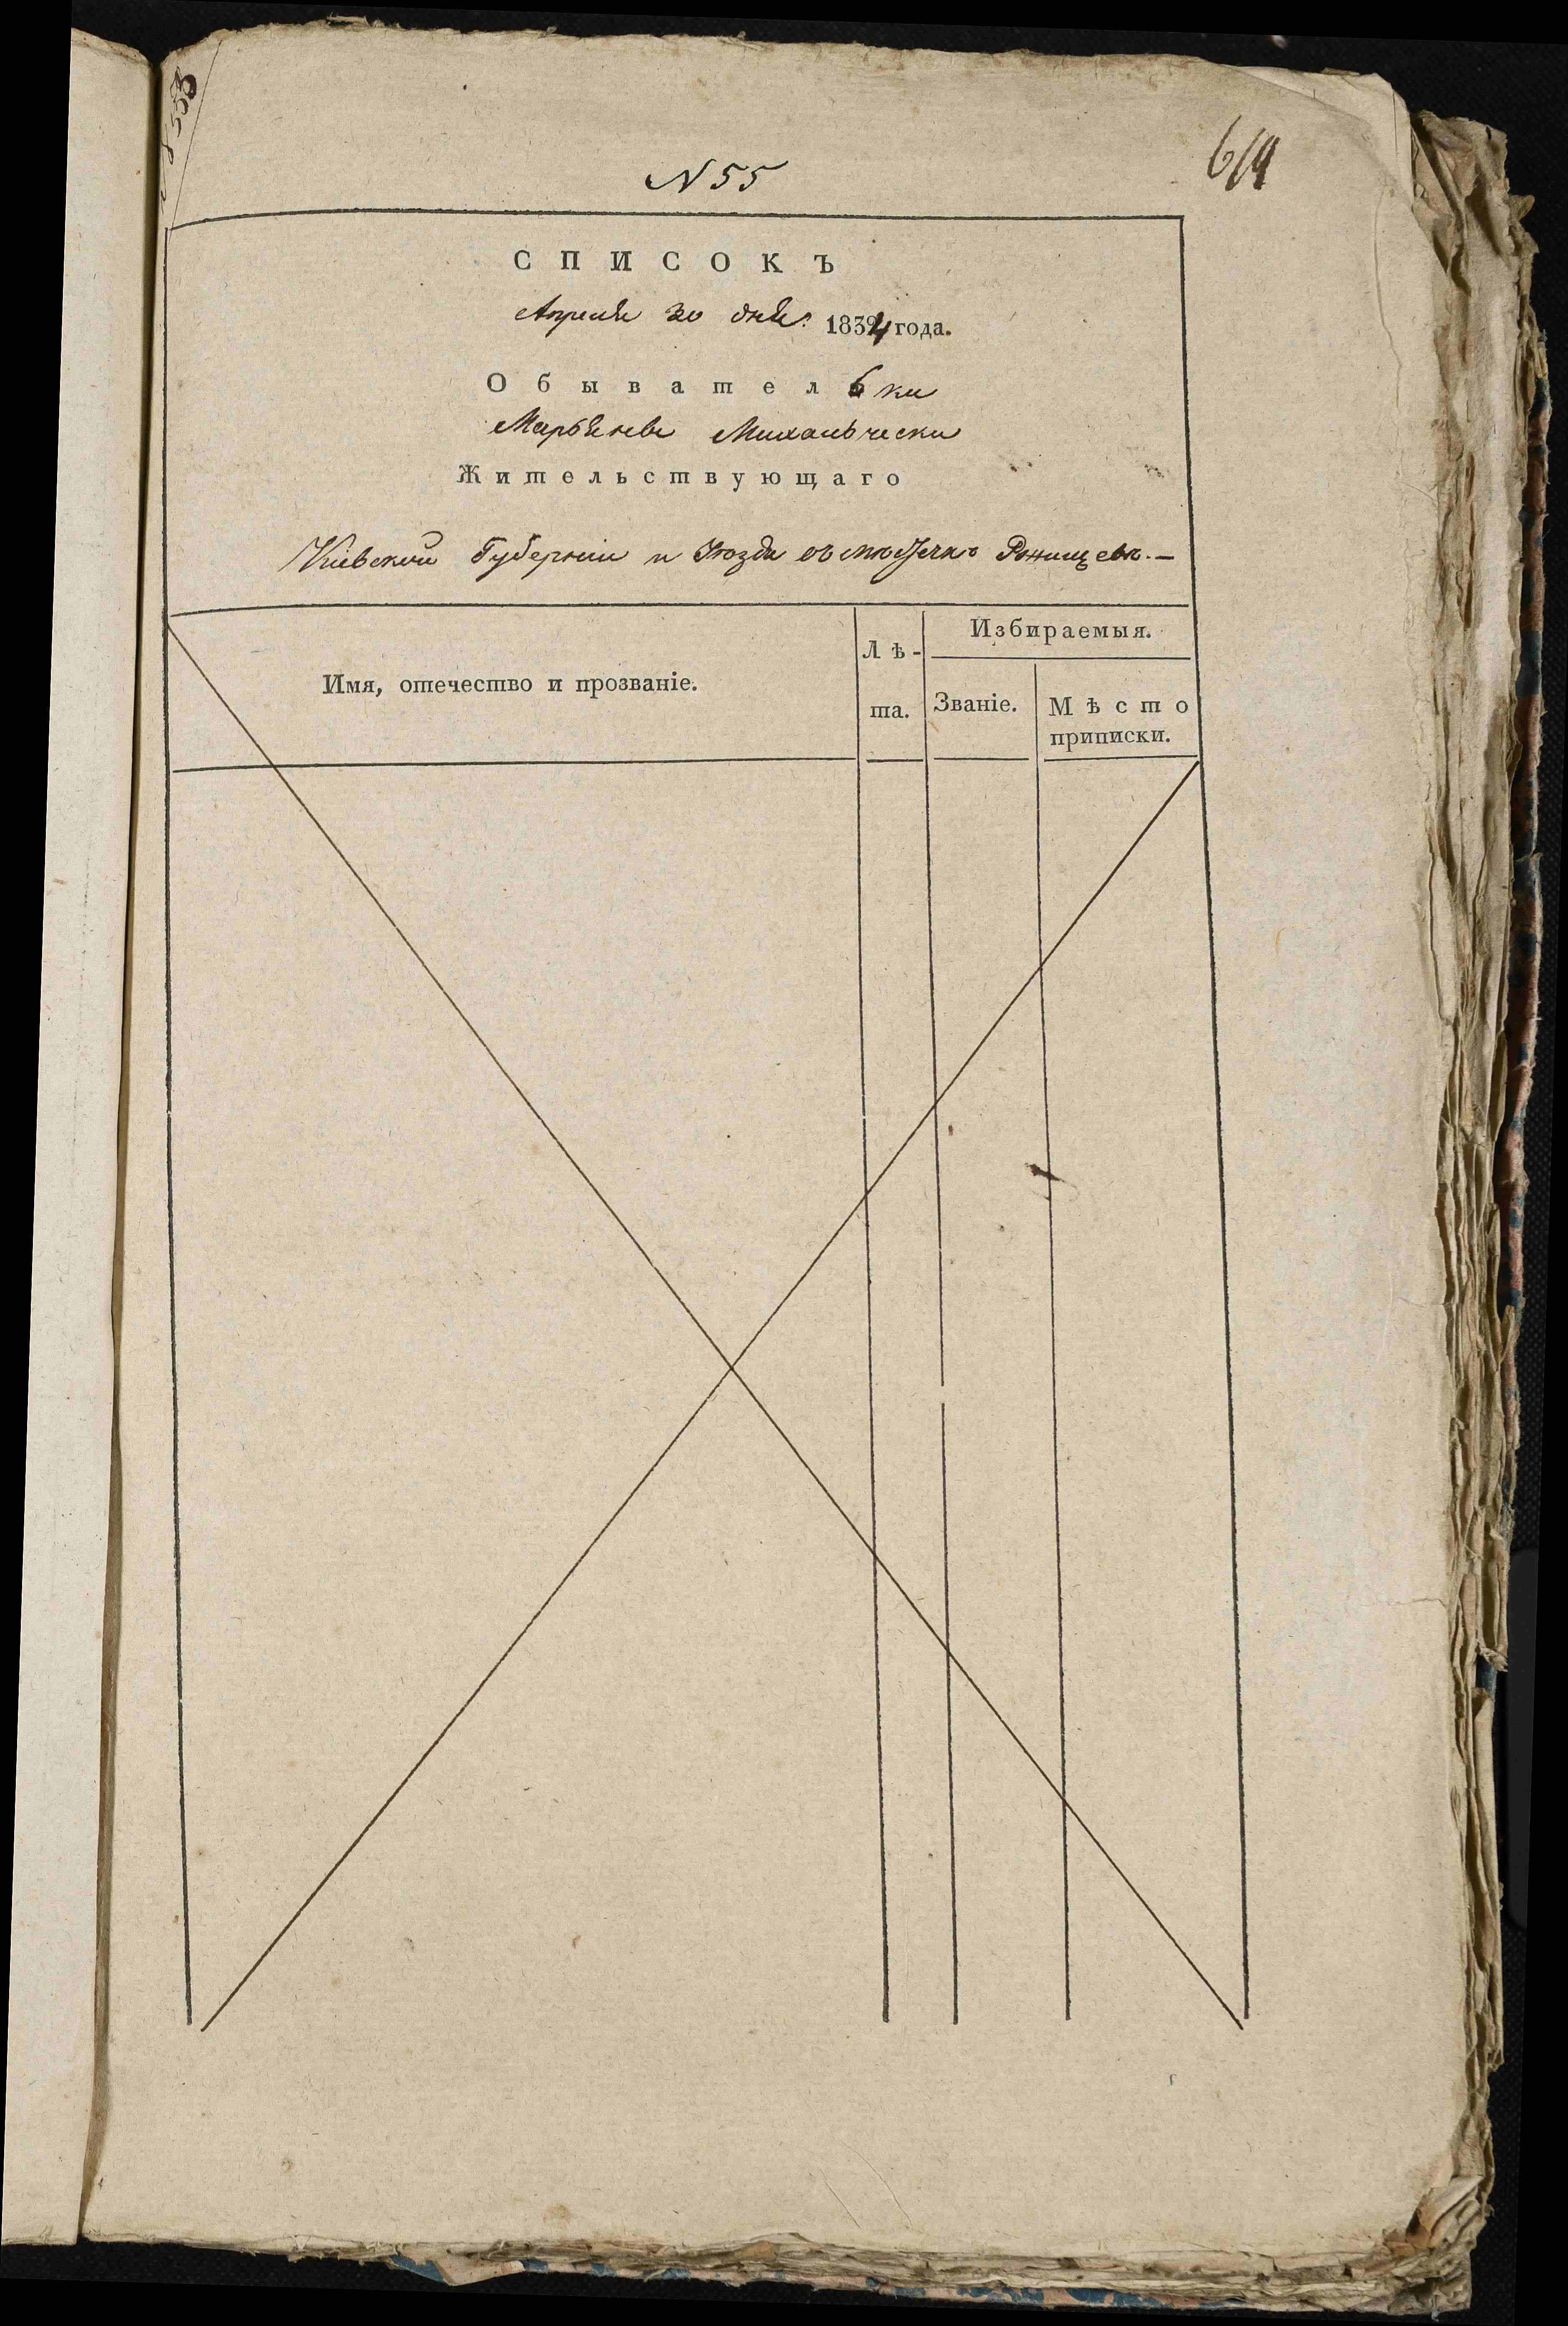 N 55
619
СПИСОКЪ
Апреля 30 дня 1834 года.
Обывательки
Марьяны Михальчески
Жительствующаго
Кіевской Губерніи и Уѣзда въ мѣстечкѣ Ржищевѣ. —
Имя, отечество и прозваніе.
Лѣ-
та.
Избираемыя.
Званіе.
Мѣсто
приписки.